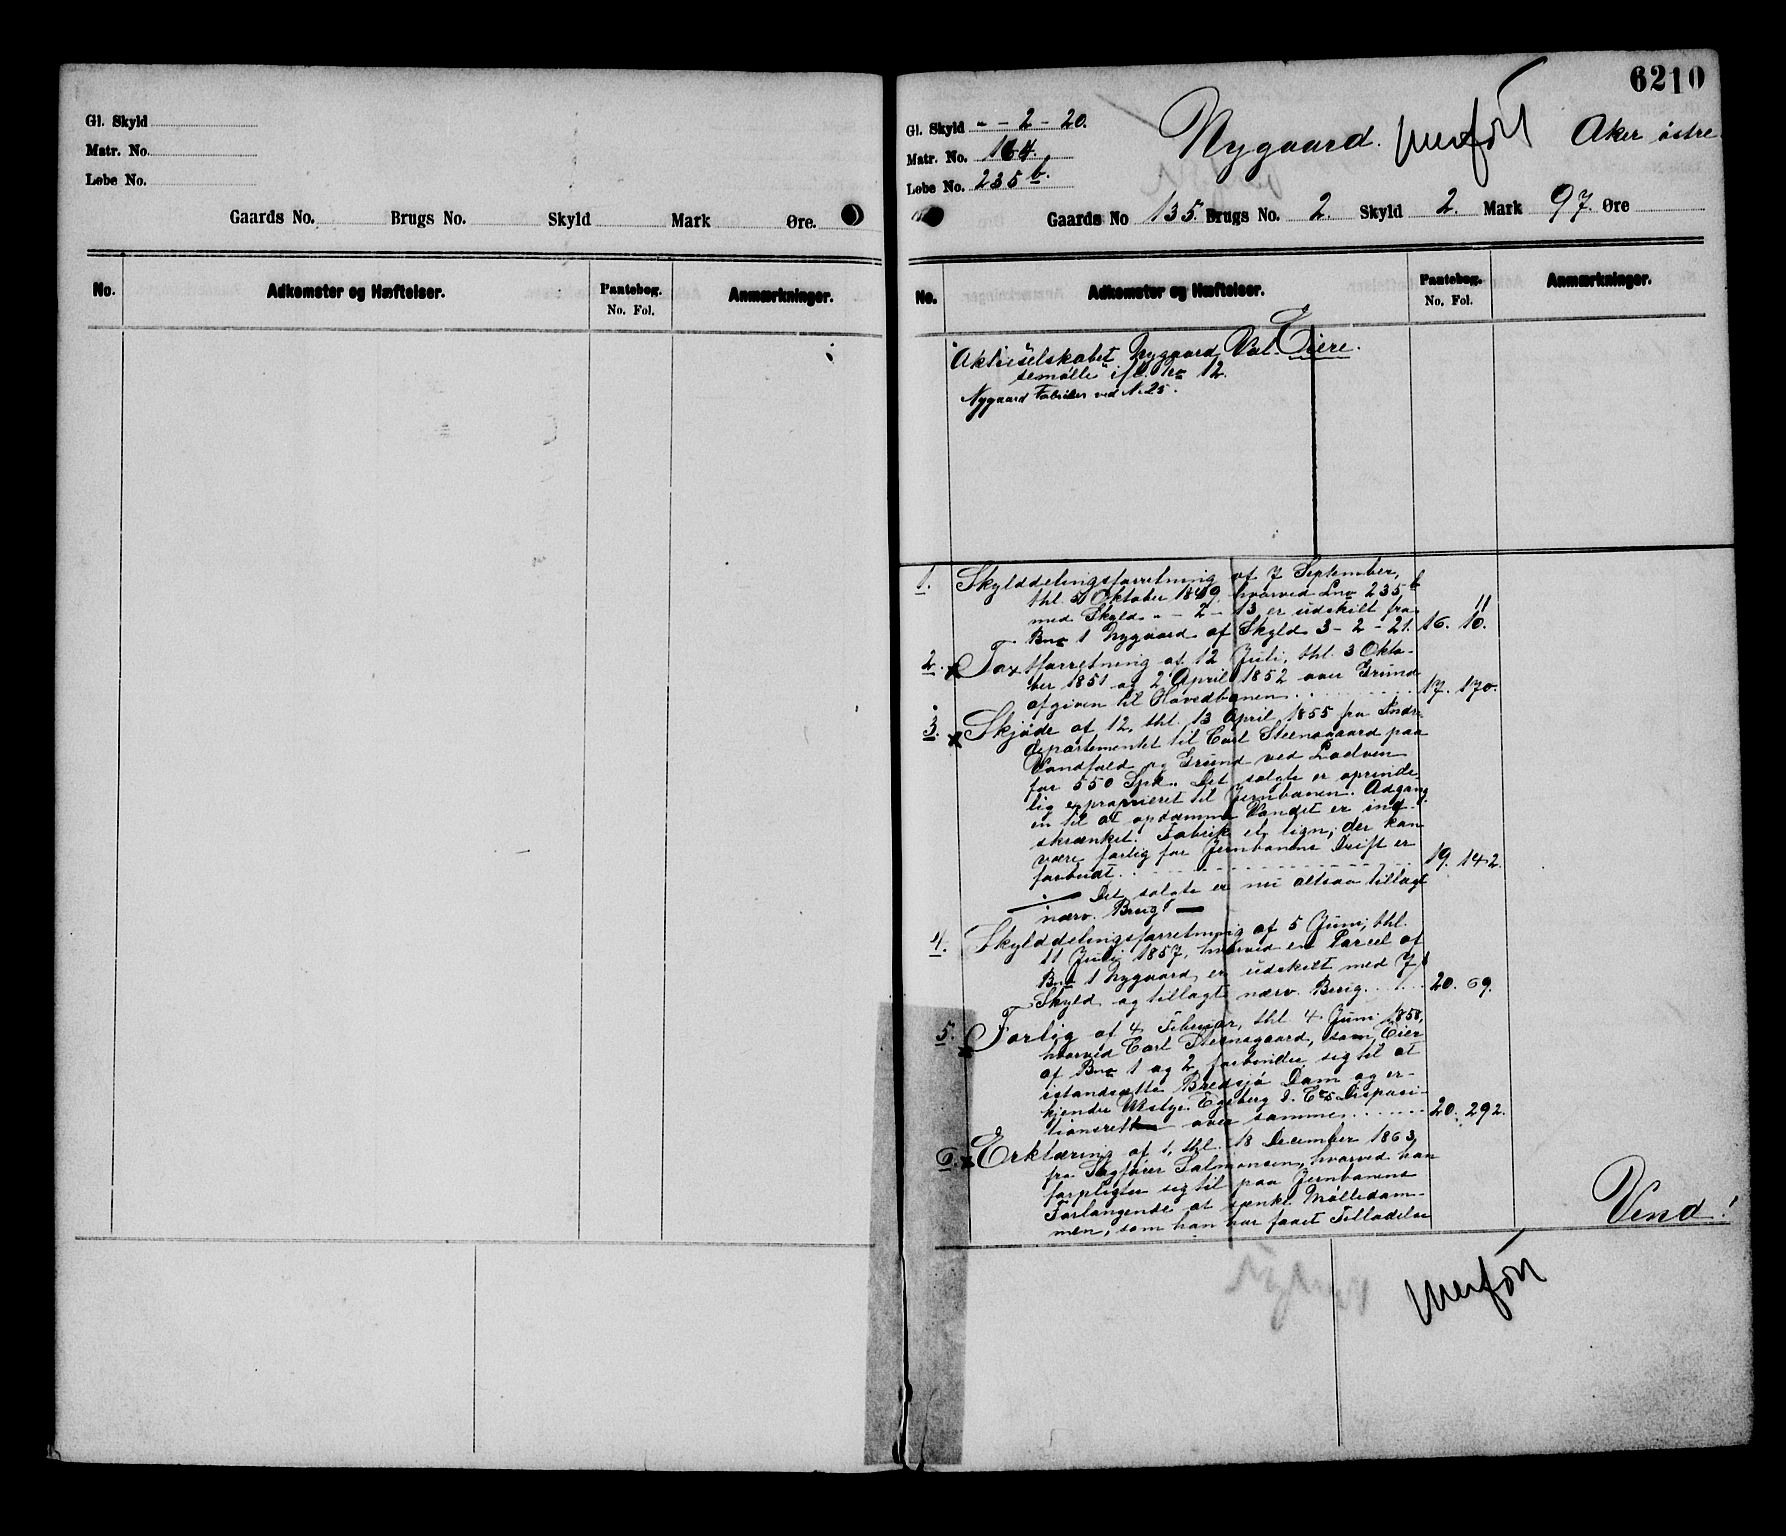 Gl. Skyld
Matr. No.
Løbe No.
Gaards No. Brugs No. Skyld Mark Øre.
No. Adkomster og Hæftelser. Pantebog. No. Fol. Anmærkninger.
6210
Gl. Skyld - - 2 - 20.
Matr. No. 164.
Løbe No. 235 b.
Nygaard. Aker østre
Gaards No 135. Brugs No. 2. Skyld 2. Mark 97. Øre
No. Adkomster og Hæftelser. Pantebog. No. Fol. Anmærkninger.
Eiere.
"Aktieselskabet Nygaard Val-
semølle" ifl. No 12.
Nygaard Fabriker ved N. 25.
1. Skylddelingsforretning af 7 September,
thl. 5 Oktober 1849, hvorved Lno 235 b
med Skyld - - 2 - 13 er udskilt fra
Bno 1 Nygaard af Skyld 3 - 2 - 21. 16. 10. 11
2. x Taxtforretning af 12 Juli, thl. 3 Okto-
ber 1851 og 2 April 1852 over Grund
afgiven til Hovedbanen 17. 170.
3. x Skjøde af 12, thl. 13 April 1855 fra Indre-
departementet til Carl Steensgaard paa
Vandfald og Grund ved Loelven
for 550 Spd. Det solgte er oprinde-
lig exproprieret til Jernbanen. Adgang-
en til at opdæmme Vandet er ind-
skrænket. Fabrik el. lign., der kan
være farlig for Jernbanens Drift er
forbudt. 19. 142.
Det solgte er nu altsaa tillagt
nærv. Brug!
4. Skylddelingsforretning af 5 Juni, thl.
11 Juli 1857, hvorved en Parcel af
Bno 1 Nygaard er udskilt med 7 s
Skyld og tillagt nærv. Brug 20. 69.
5. x Forlig af 4 Februar, thl 4 Juni 1858,
hvorved Carl Steensgaard, som Eier
af Bno 1 og 2 forbinder sig til at
istandsætte Bredsjø Dam og er-
kjender Westye Egeberg & Co's Disposi-
tionsret over samme 20. 292.
6. x Erklæring af 1, thl. 18 December 1863,
fra Sagfører Salmonsen, hvorved han
forpligter sig til paa Jernbanens
Forlangende at sænke Mølledam-
men, som han har faaet Tilladelse
Vend!